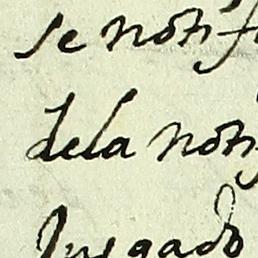 se notif
dela noti
Jusgado